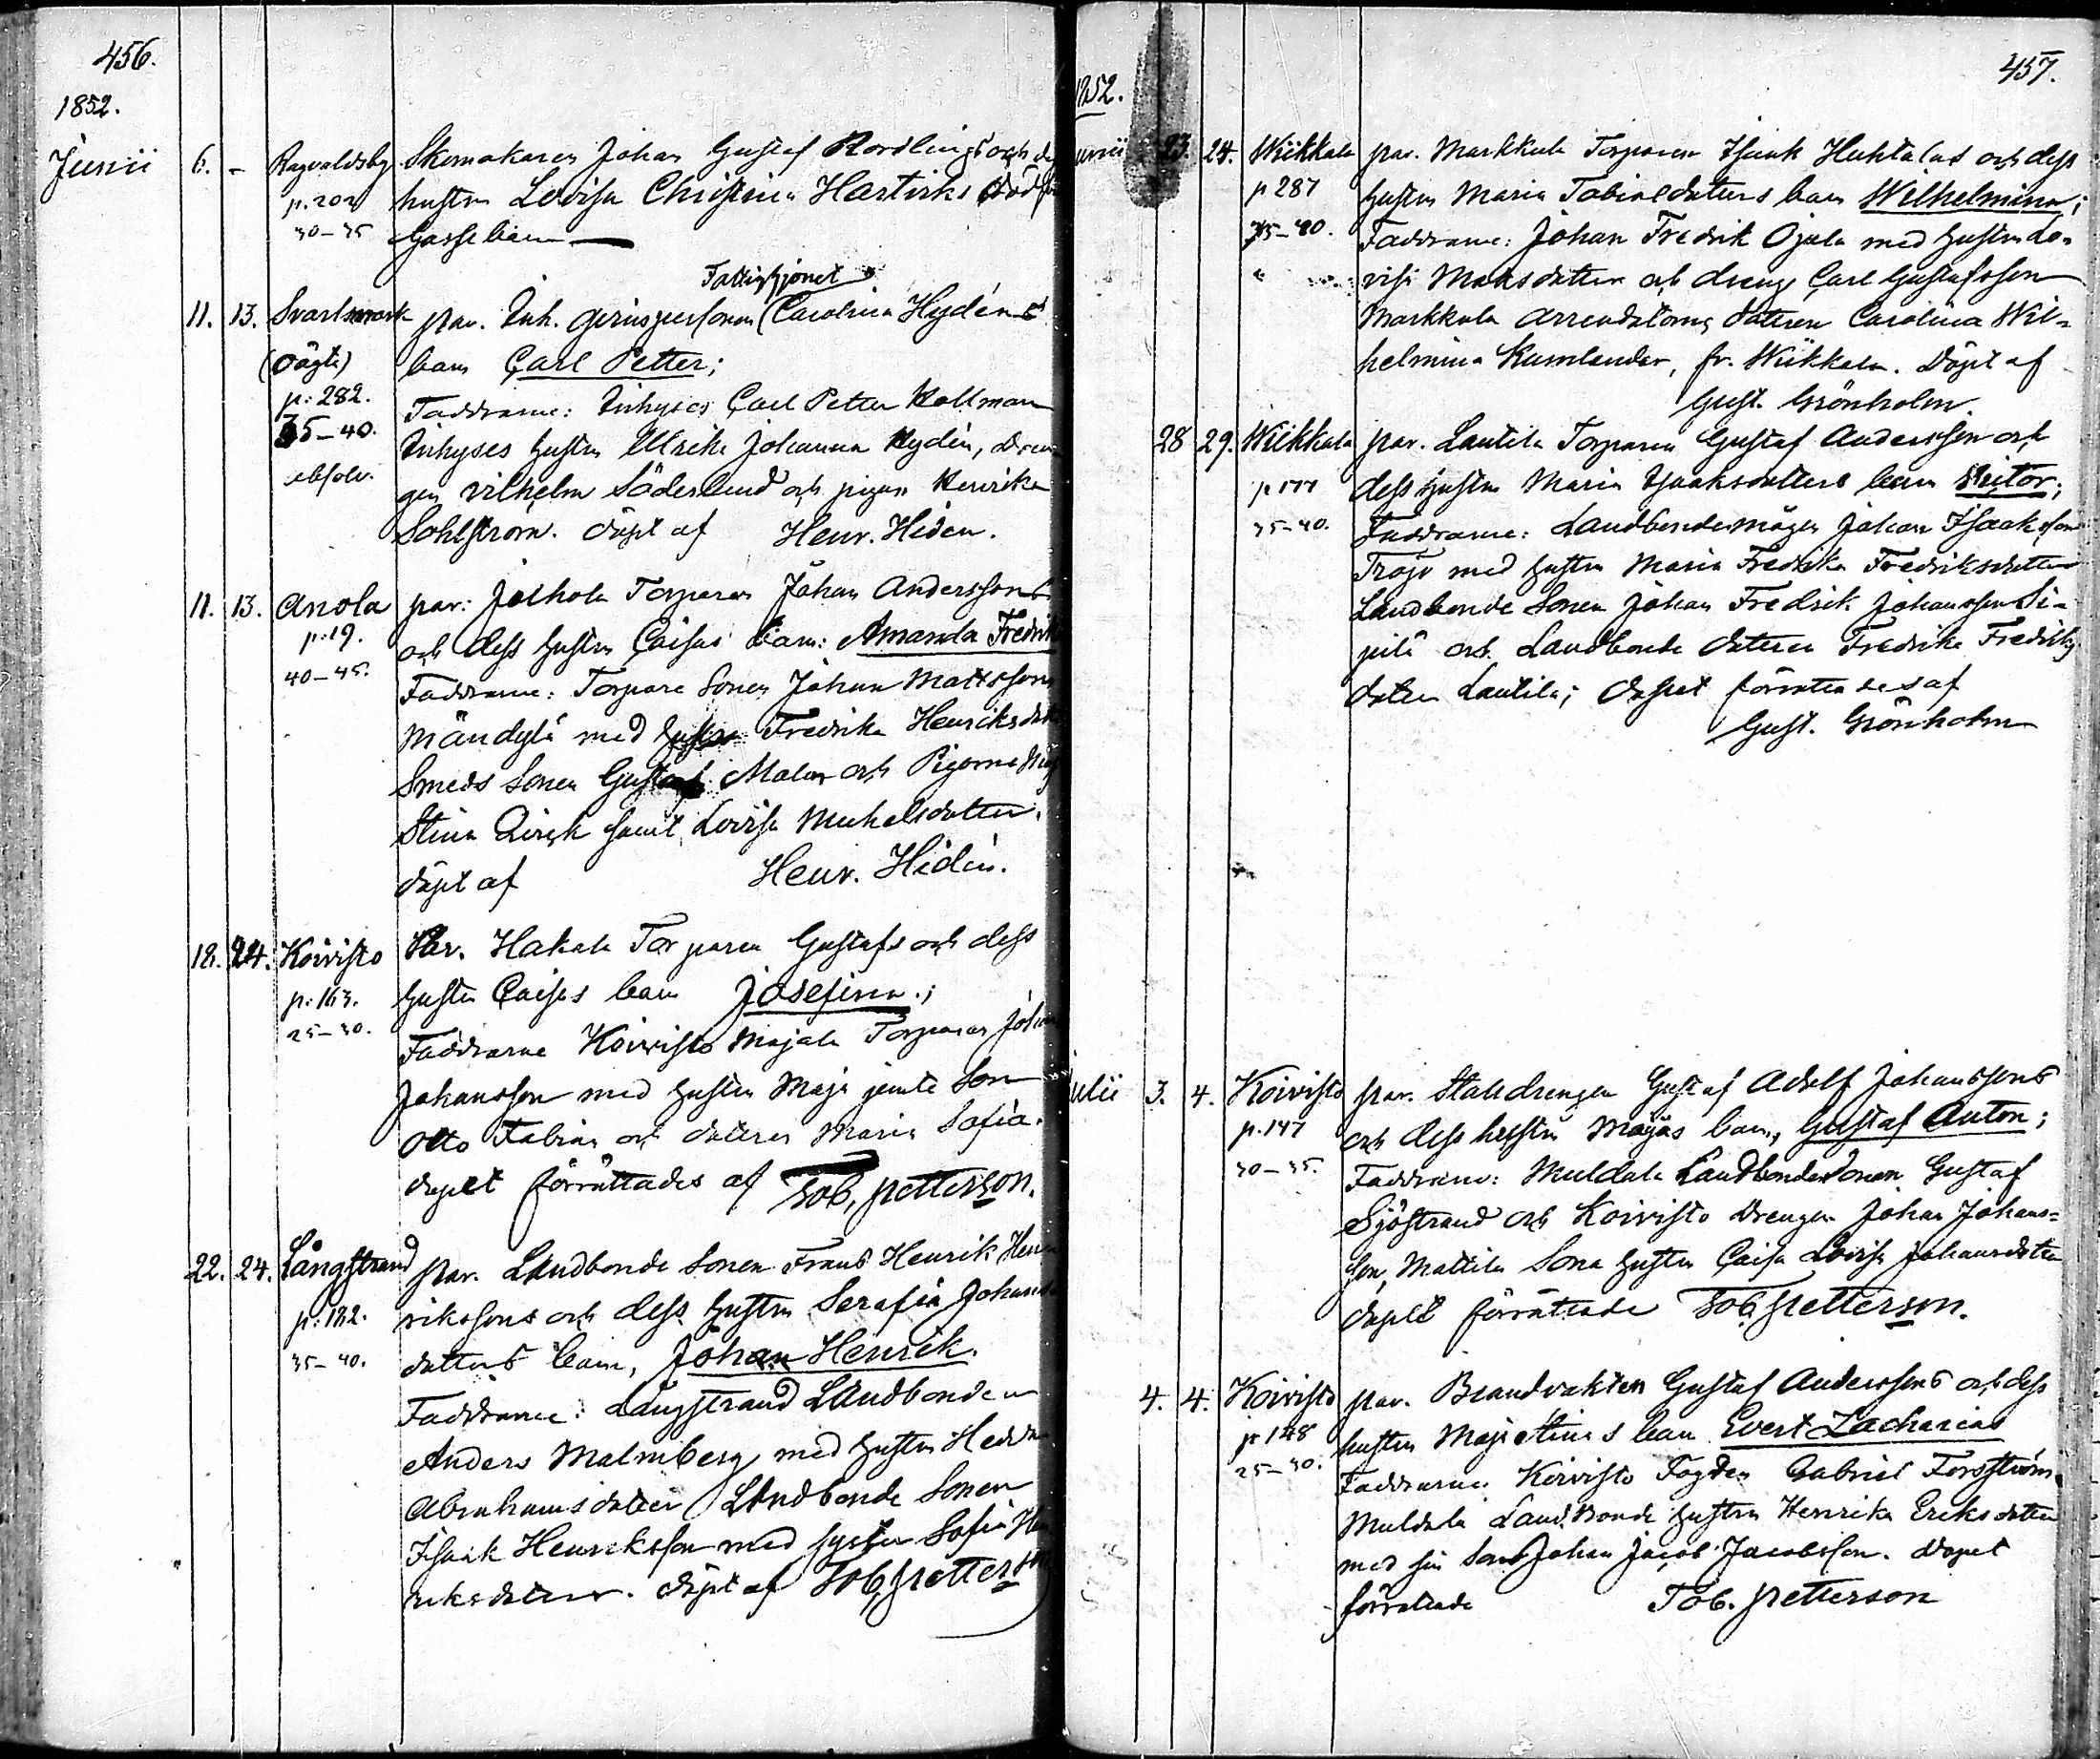 456.
1852.
Junii 6. - Ragvaldsby Skomakaren Johan Gustaf Nordlings och
p. 202 hustru Lovisa Christina Hartviks död
30-35 Gossebarn —
Fattighjonet
11. 13. Svartsmark par. Inh. qvinspersonen Carolina Hydéns
(oägta) barn Carl Petter;
p: 282. Faddrarne: Inhyses Carl Petter Kollman
35-40. Inhyses hustru Ulrika Johanna Hydén, dren
absolv. gen Vilhelm Söderlund och pigan Henrika
Sohlstrom. döpt af Henr. Hiden.
11. 13. Anola par: Torparen Johan Anderssons
p: 19. och dess hustru Caisas barn: Amanda Fredrik
40-45. Faddrarne: Torpare Sonen Johan Mattsson
Mändylä med hustru Fredrika Henriksdott
Smeds Sonen Gustaf och Pigorna
Stina Qvick samt Lovisa Michelsdotter.
döpt af Henr. Hidén.
18. 24. Koivisto Par. Hakala Torparen Gustafs och dess
p: 163. hustru Caisas barn Josefina.;
25-30. Faddrarne Koivisto Majala Torparen Johan
Johansson med hustru Maja jemte Son
Otto Fabian och dottren Maria Sofia.
dopet förrättades af Tob, petterson.
22. 24. Långstrand par. Landbonde Sonen Frans Henrik Hen
p: 132. rikssons och dess hustru Serafia Johans
35-40. dotters barn, Johan Henrik.
Faddrarne: Långstrand Landbonden
Anders Malmberg med hustru Hedda
Abrahamsdotter Landbonde Sonen
Isaak Henriksson med syster Sofia He
riksdotter. döpt af Tob, petterson
457.
1852.
Junii 23. 24. Wiikkala par. Markkula Torparen Isaak Huhtalas och dess
p 287 hustru Maria Tobiasdotters barn Wilhelmina;
35-40. Faddrarne: Johan Fredrik Ojala med hustru Lo-
visa Maksdotter och dreng Carl Gustafsson
Markkula Arrendatorns dottren Carolina Wil-
helmina Kumlander, fr. Wiikkala. Döpt af
Gust. Grönholm.
28 29. Wiikkala par. Lautila Torparen Gustaf Andersson och
p 177 dess hustru Maria Isaaksdotters barn Victor;
35-40. Faddrarne: Landbondemågen Johan Isaaksson
Tröjo med hustru Maria Fredrika Fredriksdotter
Landbonde Sonen Johan Fredrik Johansson Si-
pilä och Landbonde dottren Fredrika Fredriks
dotter Lautila; dopet förrättades af
Gust. Grönholm
Julii 3. 4. Koivisto par. Stalldrengen Gustaf Adolf Johanssons
p. 147 och dess hustru Majas barn, Gustaf Anton;
30-35. Faddrarne: Muldala Landbonde Sonen Gustaf
Sjöstrand och Koivisto Drengen Johan Johans=
son, Mattila Sona hustru Caisa Lovisa Johansdotter
dopet förrättade Tob, petterson.
4. 4. Koivisto par. Brandvakten Gustaf Anderssons och dess
p 148 hustru Maja Stinas barn Evert Zacharias
25-30. Faddrarne Koivisto Fogden Gabriel Forsström
Muldala Landbonde hustru Henrika Eriksdotter
med sin Son Johan Jacob Jacobsson. Dopet
förrättade Tob. petterson